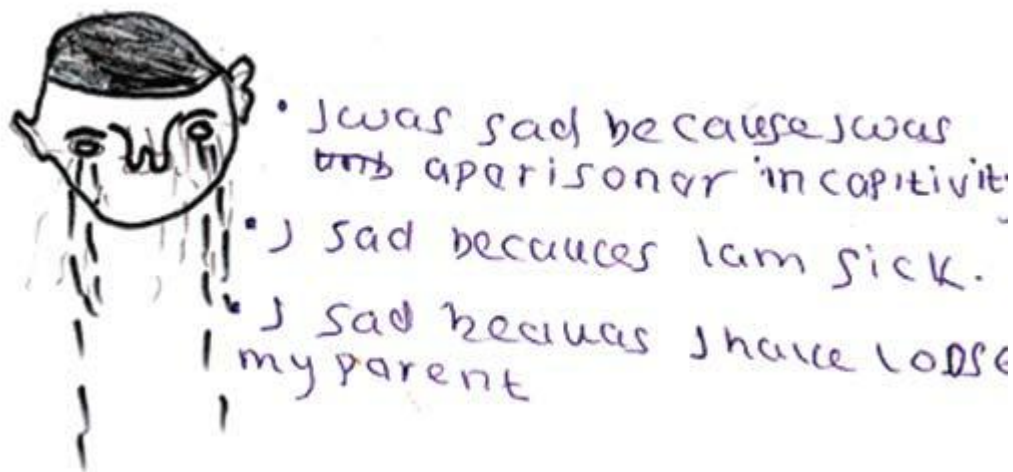 • I was sad because I was
a parisonar in capitivity
• I sad becauces I am sick.
• I sad becauas I have loose
my parent